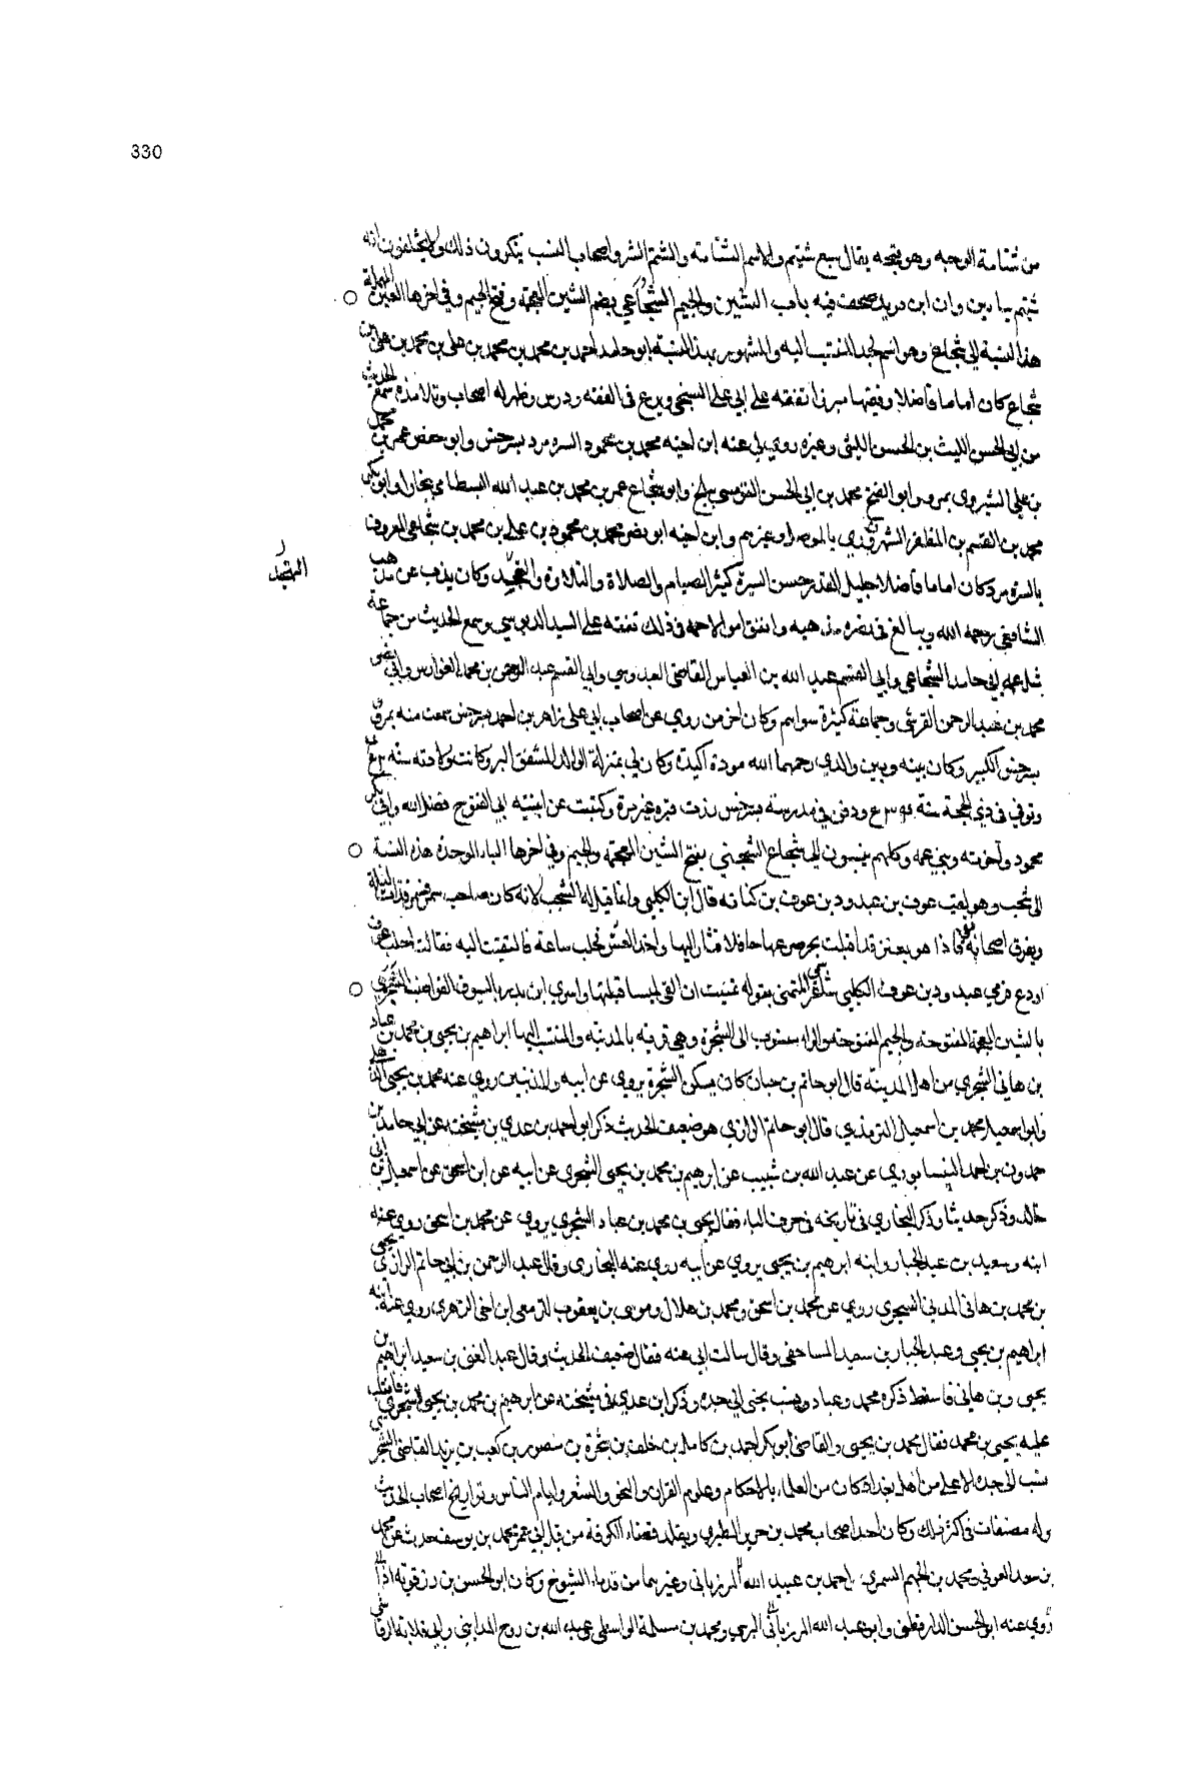 330
من شتامة الوجه وهو قبحه يقال سبع شتيم والاسم الشتامة والشتم الشر واصحاب النسب ينكرون ذلك ولا يختلفون انه
شتيم بيائين وان ابن دريد صحف فيه باب الشين والجيم الشجاعي بضم الشين المعجمة وفتح الجيم وفي اخرها العين المهملة
هذه النسبة الى شجاع وهو اسم لجد المنتسب اليه والمشهور بهذه النسبة ابو حامد احمد بن محمد بن محمد بن علي بن محمد بن علي بن
شجاع كان اماما فاضلا وفقيها مبرزا تفقه على ابي علي السنجي وبرع في الفقه ودرس وظهر له اصحاب وتلامذة سمع الحديث
من ابي الحسن الليث بن الحسن الليثي وغيره روى لي عنه ابن اخيه محمد بن محمود السره مرد بسرخس وابو حفص عمر بن محمد
بن علي الشيروي بمرو وابو الفتح محمد بن ابي الحسن القومسي ببلخ وابو شجاع عمر بن محمد بن عبد الله البسطامي ببخارا وابو بكر
محمد بن القسم بن المظفر الشهرزوري بالموصل وغيرهم وابن اخيه ابو نصر محمد بن محمود بن علي بن محمد بن شجاعي المعروف
بالسره مرد كان اماما فاضلا جليل القدر حسن السيرة كثير الصيام والصلاة والتلاوة والتهجد وكان يذب عن مذهب
التهجد
الشافعي رحمه الله ويبالغ في نصرة مذهبه وانفق اموالا جمة في ذلك تفقه على السيد الدبوسي وسمع الحديث من جماعة
مثل عمه ابي حامد الشجاعي وابي القسم عبد الله بن العباس القاضي العبدوسي وابي القسم عبد الرحمن بن محمد الفوارس وابي نصر
محمد بن عبد الرحمن القرشي وجماعة كثيرة سواهم وكان اخر من روى عن اصحاب ابي علي زاهر بن احمد بسرخس سمعت منه بمرو
بسرخس الكبير وكان بينه وبين والدي رحمهما الله مودة اكيدة وكان لي بمنزلة الوالد المشفق البر وكانت ولادته سنة
وتوفي في ذي الحجة سنة ودفن في مدرسته بسرخس زرت قبره غير مرة وكتبت عن ابنيه ابي الفتوح فضل الله وابي بكر
محمود واخوته وبني عمه وكلهم ينسبون الى شجاع الشجبي بفتح الشين المعجمة والجيم وفي اخرها الباء الموحدة هذه النسبة
الى شجب وهو لقب عوف بن عبد ود بن عوف بن كنانة قال ابن الكلبي وانما قيل له الشجب لانه كان صاحب
وتفرق اصحابه فاذا هو بعنز قد اقبلت حافلا فثار اليها واخذ العس فحلب ساعة فالتفتت اليه فقالت احلب عوف
اودع فرمي عبد ود بن عوف الكلبي شاعر المتمنى بقوله تمنيت ان القى لميسا فتلقها واسرى ابن بدر بالسيوف القواضب الشجري
بالشين المعجمة المفتوحة والجيم المفتوحة والراء منسوب الى الشجرة وهي قرية بالمدينة والمنتسب اليها ابراهيم بن يحيى بن محمد بن عباد
بن هاني الشجري من اهل المدينة قال ابو حاتم بن حبان كان يسكن الشجرة يروي عن ابيه والمدنيين روى عنه محمد بن يحيى الذهلي
وابو اسمعيل محمد بن اسمعيل الترمذي قال ابو حاتم الرازي هو ضعيف الحديث ذكر ابو احمد بن عدي بن مشيخته عن ابي حامد بن
حمدون بن احمد النيسابوري عن عبد الله بن شبيب عن ابرهيم بن محمد بن يحيى الشجري عن ابيه عن ابن اسحق عن اسمعيل بن ابي
خالد وذكر حديثا وذكر البخاري في تاريخه في حرف الياء فقال يحيى بن محمد بن عباد الشجري يروي عن محمد بن اسحق روى عنه
ابنه وسعيد بن عبد الجبار وابنه ابرهيم بن يحيى يروي عن ابيه روى عنه البخاري وقال عبد الرحمن بن ابي حاتم الرازي يحيى
بن محمد بن هاني المدني الشجري روى عن محمد بن اسحق ومحمد بن هلال وموسى بن يعقوب الزمعي ابن اخي الزهري روى عنه ابنه
ابراهيم بن يحيى وعبد الجبار بن سعيد المساحقي وقال سالت ابي عنه فقال ضعيف الحديث وقال عبد الغني بن سعيد ابراهيم بن
يحيى بن هاني فاسقط ذكره محمد وعباد ونسب يحيى الى جده وذكر ابن عدي في مشيخته عن ابرهيم بن محمد بن يحيى الشجري فانقلب
عليه يحيى بن محمد فقال محمد بن يحيى والقاضي ابو بكر احمد بن كامل بن خلف بن شجرة بن منصور بن كعب بن يزيد القاضي الشجري
نسب الى جده الاعلى من اهل بغداد كان من العلماء بالاحكام وعلوم القران والنحو والشعر وايام الناس وتواريخ اصحاب الحديث
وله مصنفات في اكثر ذلك وكان احد اصحاب محمد بن جرير الطبري وتقلد قضاء الكوفة من قبل ابي عمر محمد بن يوسف حدث عن محمد
بن سعد العوفي ومحمد بن الجهم السمري احمد بن عبيد الله المرزباني وغيرهما من قدماء الشيوخ وكان ابو الحسن بن رزقويه اذا
روى عنه ابو الحسن الدارقطني وابو عبد الله المرزباني البرجي ومحمد بن مسلمة الواسطي عبد الله بن روح المدايني وابي قلابة الرقاشي